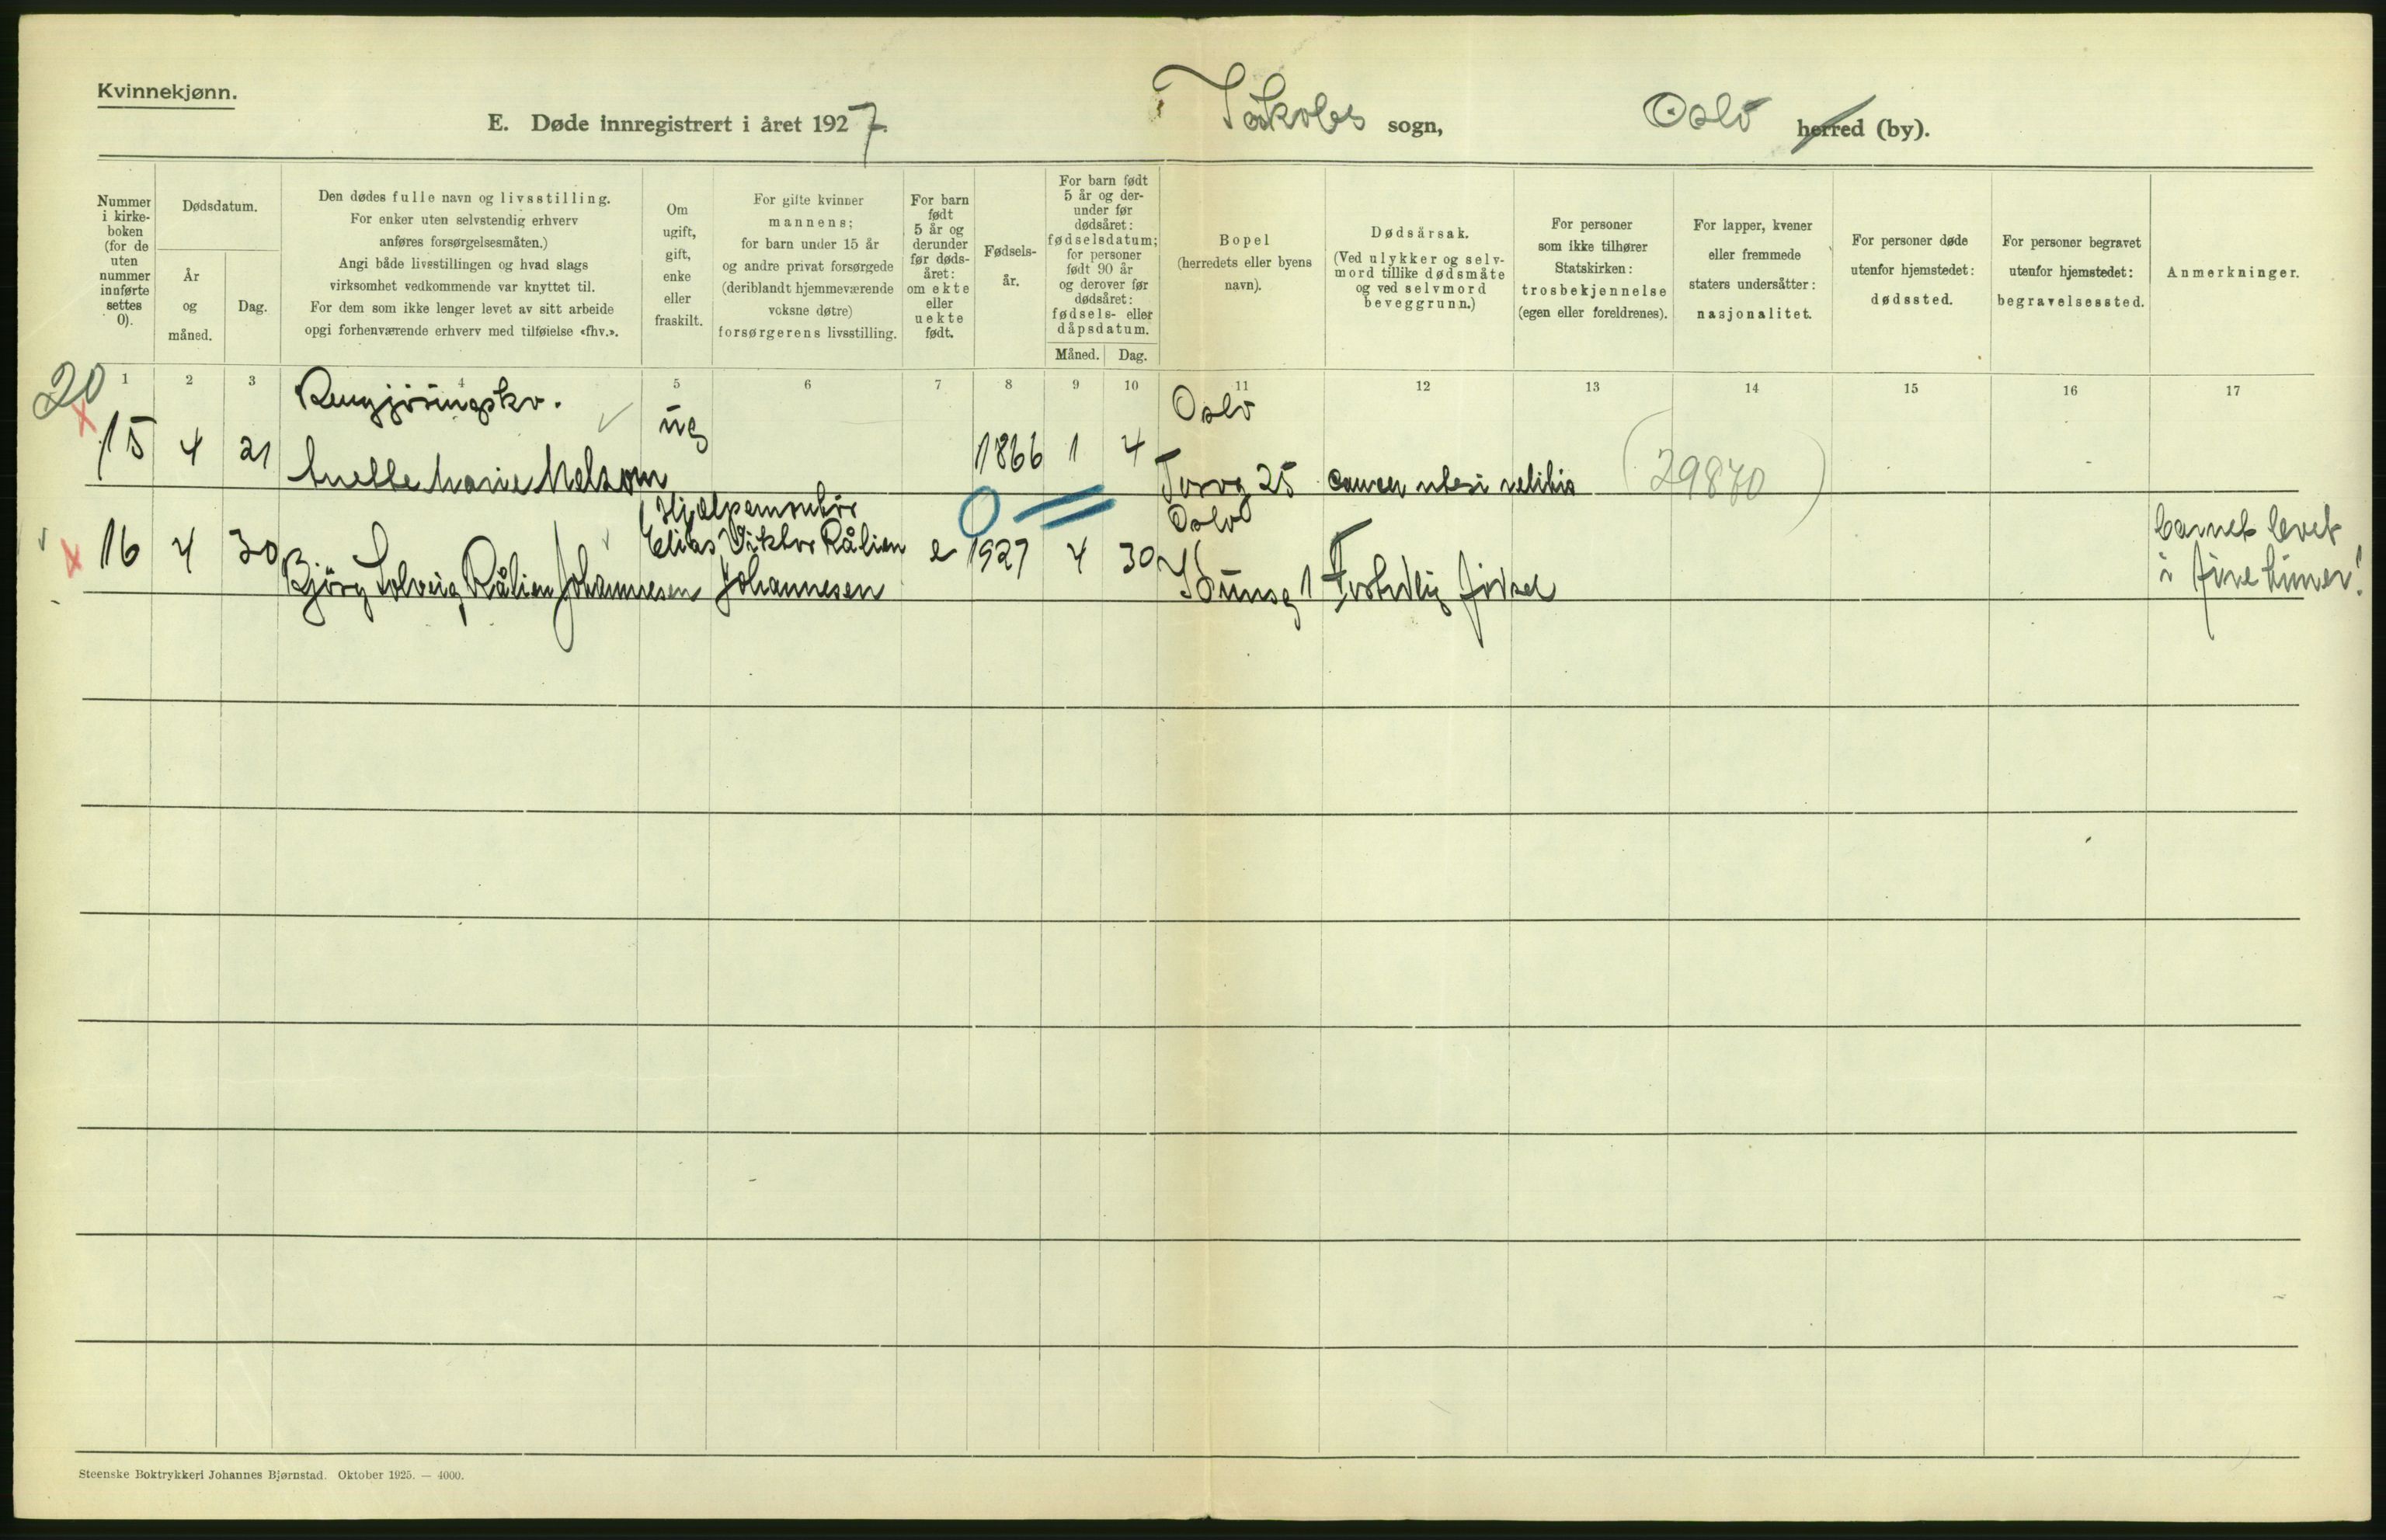 Kvinnekjønn.
E. Døde innregistrert i året 1927. Jakobs sogn, Oslo herred (by).
Nummer i kirke-boken (for de uten nummer innførte settes 0).
Dødsdatum.
År og måned.
Dag.
Den dødes fulle navn og livsstilling.
For enker uten selvstendig erhverv
anføres forsørgelsesmåten.)
Angi både livsstillingen og hvad slags
virksomhet vedkommende var knyttet til.
For dem som ikke lenger levet av sitt arbeide
opgi forhenværende erhverv med tilføielse «fhv.».
Om
ugift,
gift,
enke
eller
fraskilt.
For gifte kvinner
mannens;
for barn under 15 år
og andre privat forsørgede
(deriblandt hjemmeværende
voksne døtre)
forsørgerens livsstilling.
For barn
født
5 år og
derunder
før døds-
året:
om ekte
eller
uekte
født.
Fødsels-
år.
For barn født
5 år og der-
under før
dødsåret:
fødselsdatum;
for personer
født 90 år
og derover før
dødsåret:
fødsels- eller
dåpsdatum.
Måned. Dag.
Bopel
(herredets eller byens
navn).
Dødsårsak.
(Ved ulykker og selv-
mord tillike dødsmåte
og ved selvmord
beveggrunn.)
For personer
som ikke tilhører
Statskirken:
trosbekjennelse
(egen eller foreldrenes).
For lapper, kvener
eller fremmede
staters undersåtter:
nasjonalitet.
For personer døde
utenfor hjemstedet:
dødssted.
For personer begravet
utenfor hjemstedet:
begravelsessted.
Anmerkninger.
1 2 3 4 5 6 7 8 9 10 11 12 13 14 15 16 17
20
Rengjöringskv. ug Oslo
15 4 21 Marie 1866 1 4 Torvg 25 cancer (29870)
Hjælpemontör Oslo barnet levet
16 4 30 Elias Viktor Rålien e 1927 4 30 i fire timer!
Bjørg Solveig Rålien Johannesen Johannesen 1 Fortidlig födsel
Steenske Boktrykkeri Johannes Bjørnstad. Oktober 1925. — 4000.